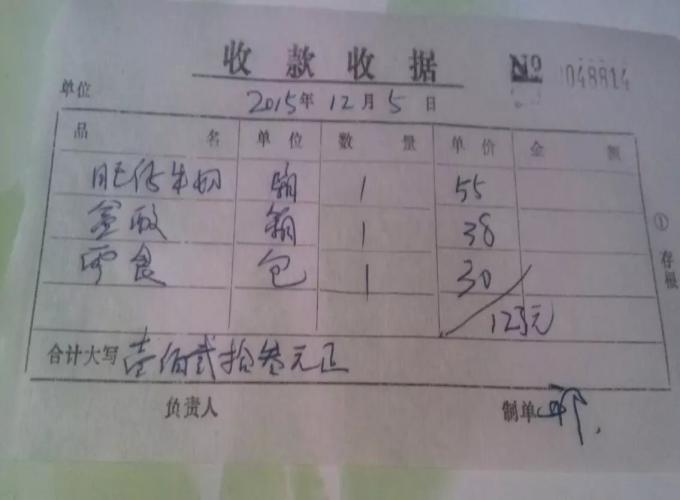 收款收据
№ 048814
单位
2015年12月5日
品名 单位 数量 单价 金额
旺仔牛奶 箱 1 55
箱 1 38
零食 包 1 30
123元
合计大写 壹佰贰拾叁元正
负责人 制单
①存根